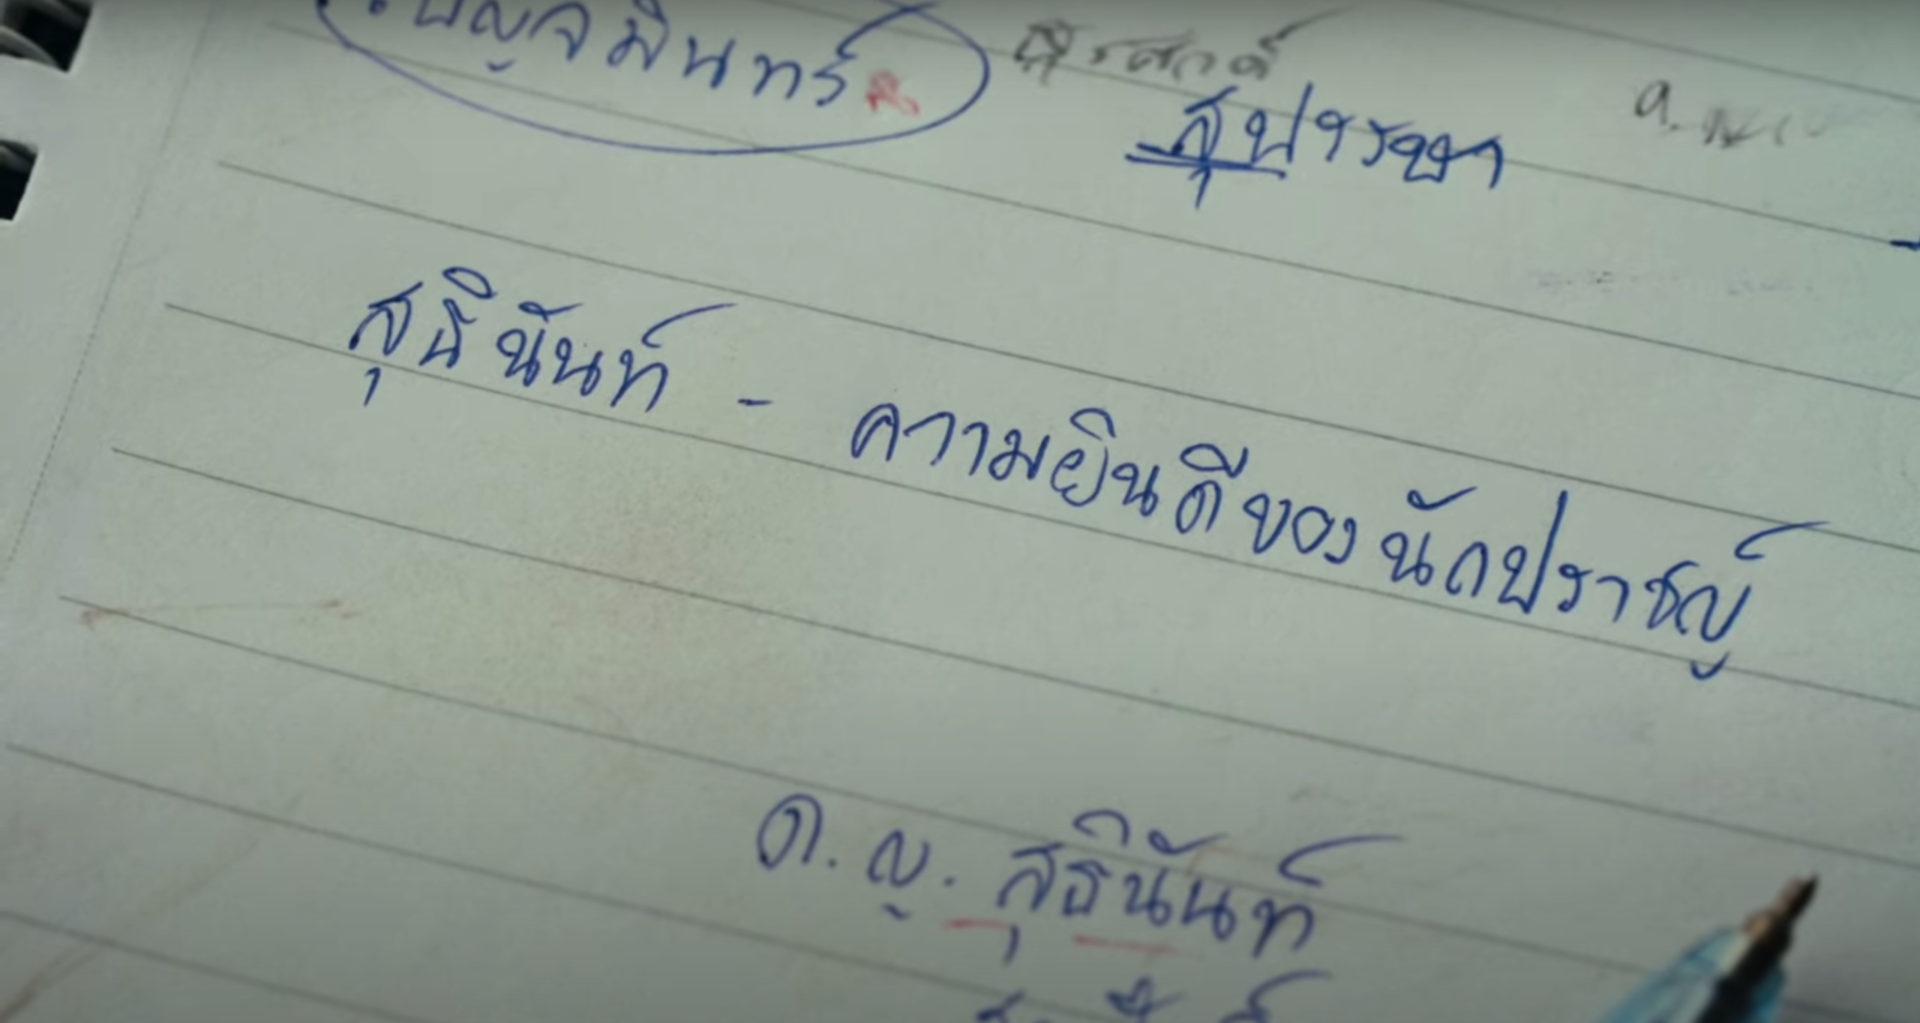 เบญจมินทร์
สุรศักดิ์
สุปรรษา
สุธินันท์ - ความยินดีของนักปราชญ์
ด.ญ. สุธินันท์